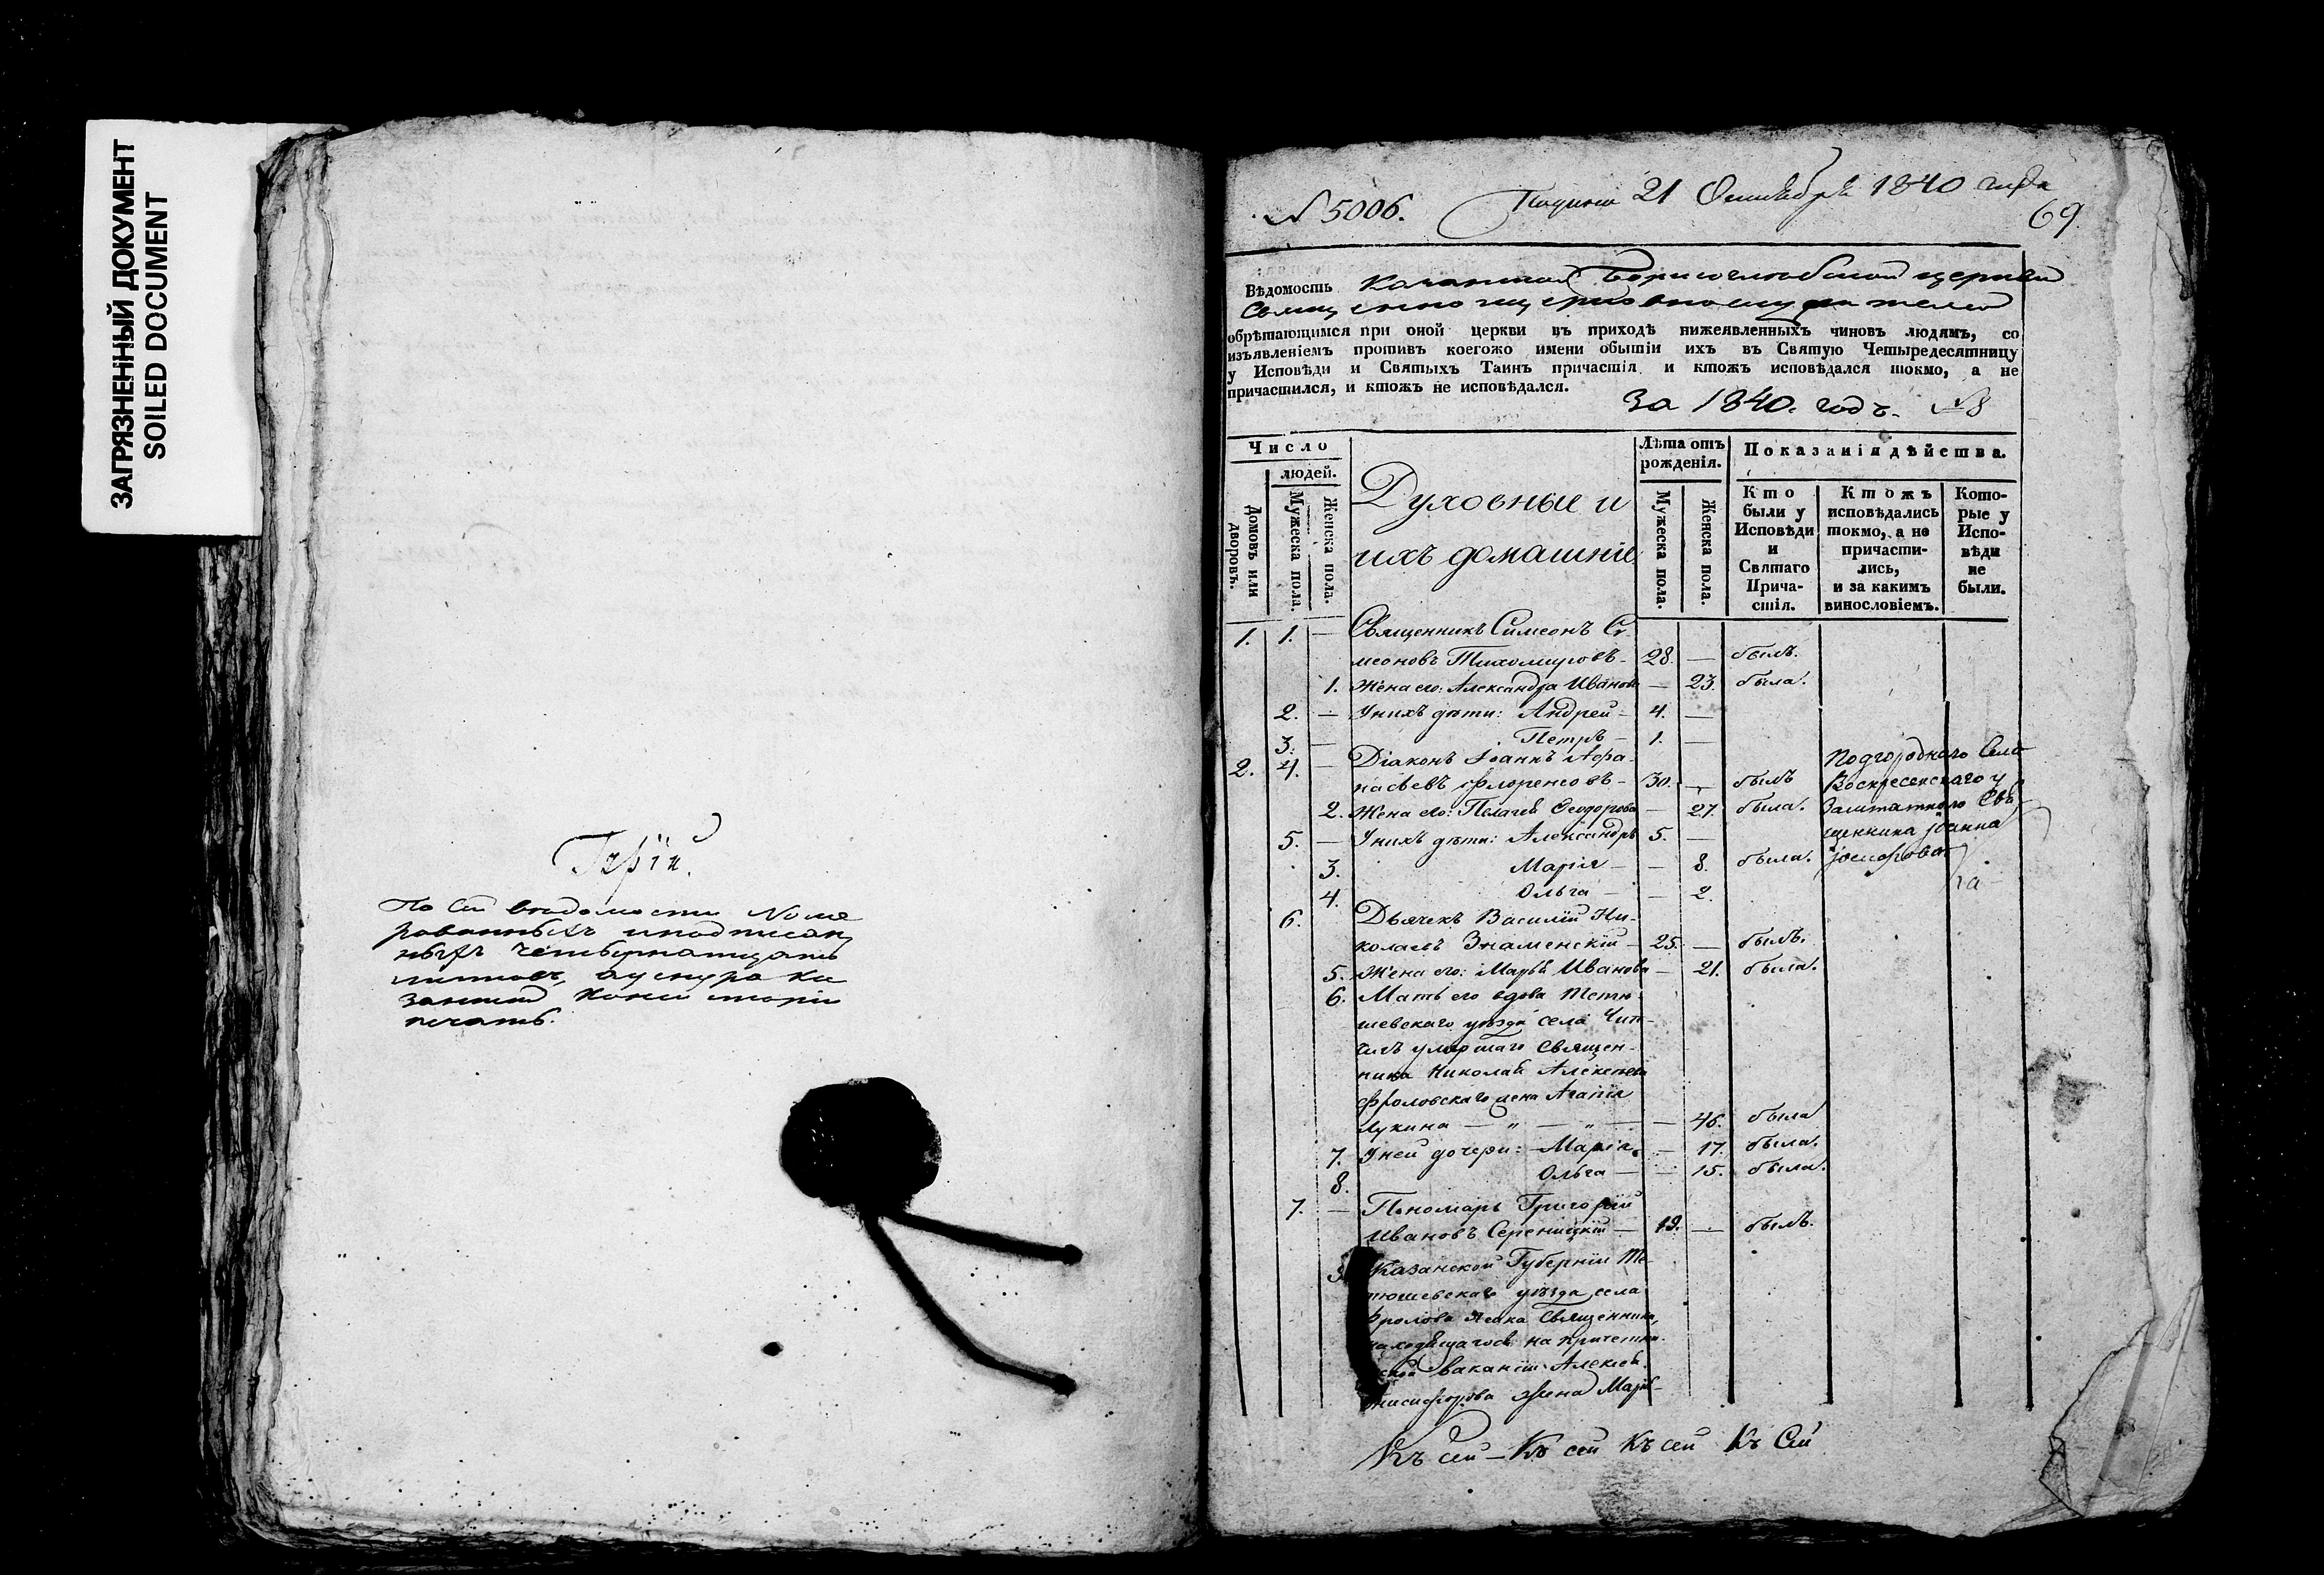 ЗАГРЯЗНЕННЫЙ ДОКУМЕНТ
SOILED DOCUMENT
По сей ведомости номе
рованныхъ и подписан
ныхъ четырнадцать
листовъ,
печать.
№ 5006.
21 Октября 1840 года
69.
Вѣдомость Казанской Борисоглебской церкви
обрѣтающимся при оной церкви въ приходѣ нижеявленныхъ чиновъ людямъ, со
изъявленіемъ противъ коегожо имени обытіи ихъ въ Святую Четыредесятницу
у Исповѣди и Святыхъ Таинъ причастія и ктожъ исповѣдался токмо, а не
причастился, и ктожъ не исповѣдался.
За 1840. годъ. №8
Число
людей.
Домовъ или дворовъ.
Мужеска пола.
Женска пола.
Духовные и
ихъ домашніе
Лѣта отъ
рожденія.
Мужеска пола.
Женска пола.
Показанія дѣйства.
Кто
были у
Исповѣди
и
Святаго
Прича-
стія.
Ктожъ
исповѣдались
токмо, а не
причасти-
лись,
и за какимъ
винословіемъ.
Кото-
рые у
Испо-
вѣди
не
были.
1. 1. — Священникъ Симеонъ Си-
меоновъ Тихомировъ — 28. — былъ.
1. Жена его: Александра Иванова — 23. была.
2. — У нихъ дѣти: Андрей — 4. —
3. — Петръ — 1. —
2. 4. — Діаконъ Іоаннъ Афа-
насьевъ Флоренсовъ — 30. — былъ
2. Жена его: Пелагея Ѳеодорова — 27. была.
5. — У нихъ дѣти: Александръ 5. —
3. Марія — — 8. была.
4. Ольга — — 2.
Подгороднаго Села
Воскресенскаго у
Заштатнаго Свя
щенника Іоанна
Іосифова
6. Дьячекъ Василій Ни-
колаевъ Знаменскій — 25. — былъ.
5. Жена его: Марья Иванова — 21. была.
6. Мать его вдова Тетю-
шевскаго уѣзда села
умершаго Священ-
ника Николая Алексѣева
Фроловскаго жена Агапія
Лукина — „ — „ — — 46. была
7. У ней дочери: Марія — 17. была.
8. Ольга — — 15. была.
7. — Пономарь Григорій
Ивановъ — 19. — былъ.
Казанской Губерніи Те-
тюшевскаго уѣзда, села
Священника,
находящагося на причетни-
ческой ваканіи Алексѣя
жена Марія
Къ сей — Къ сей Къ сей Къ Сей